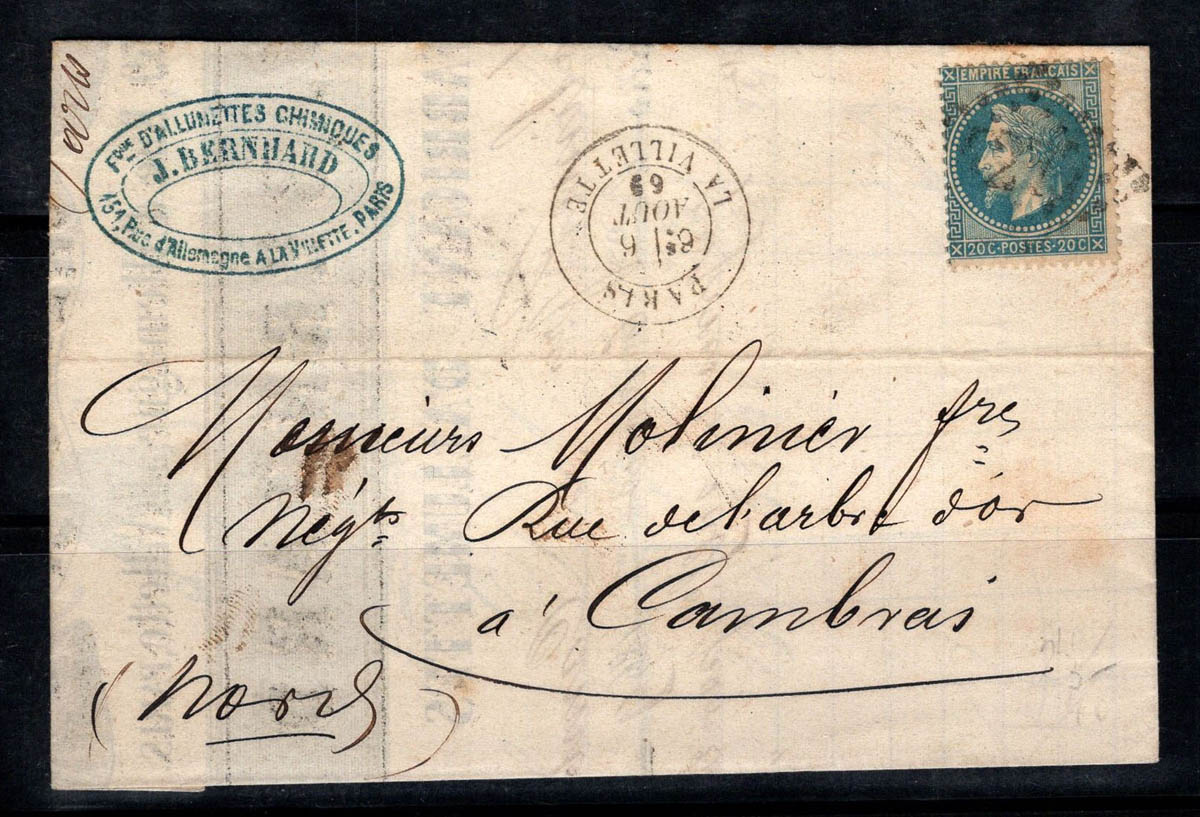 Paris
Fque D'ALLUMETTES CHIMIQUES
J. BERNHARD
151, Rue d'Allemagne A LA VILLETTE, PARIS
PARIS
6E
6
AOUT
69
LA VILLETTE
EMPIRE FRANCAIS
20 C-POSTES-20 C
Messieurs Molinier fres
Négts Rue de l'arbre d'or
à Cambrai
(Nord)